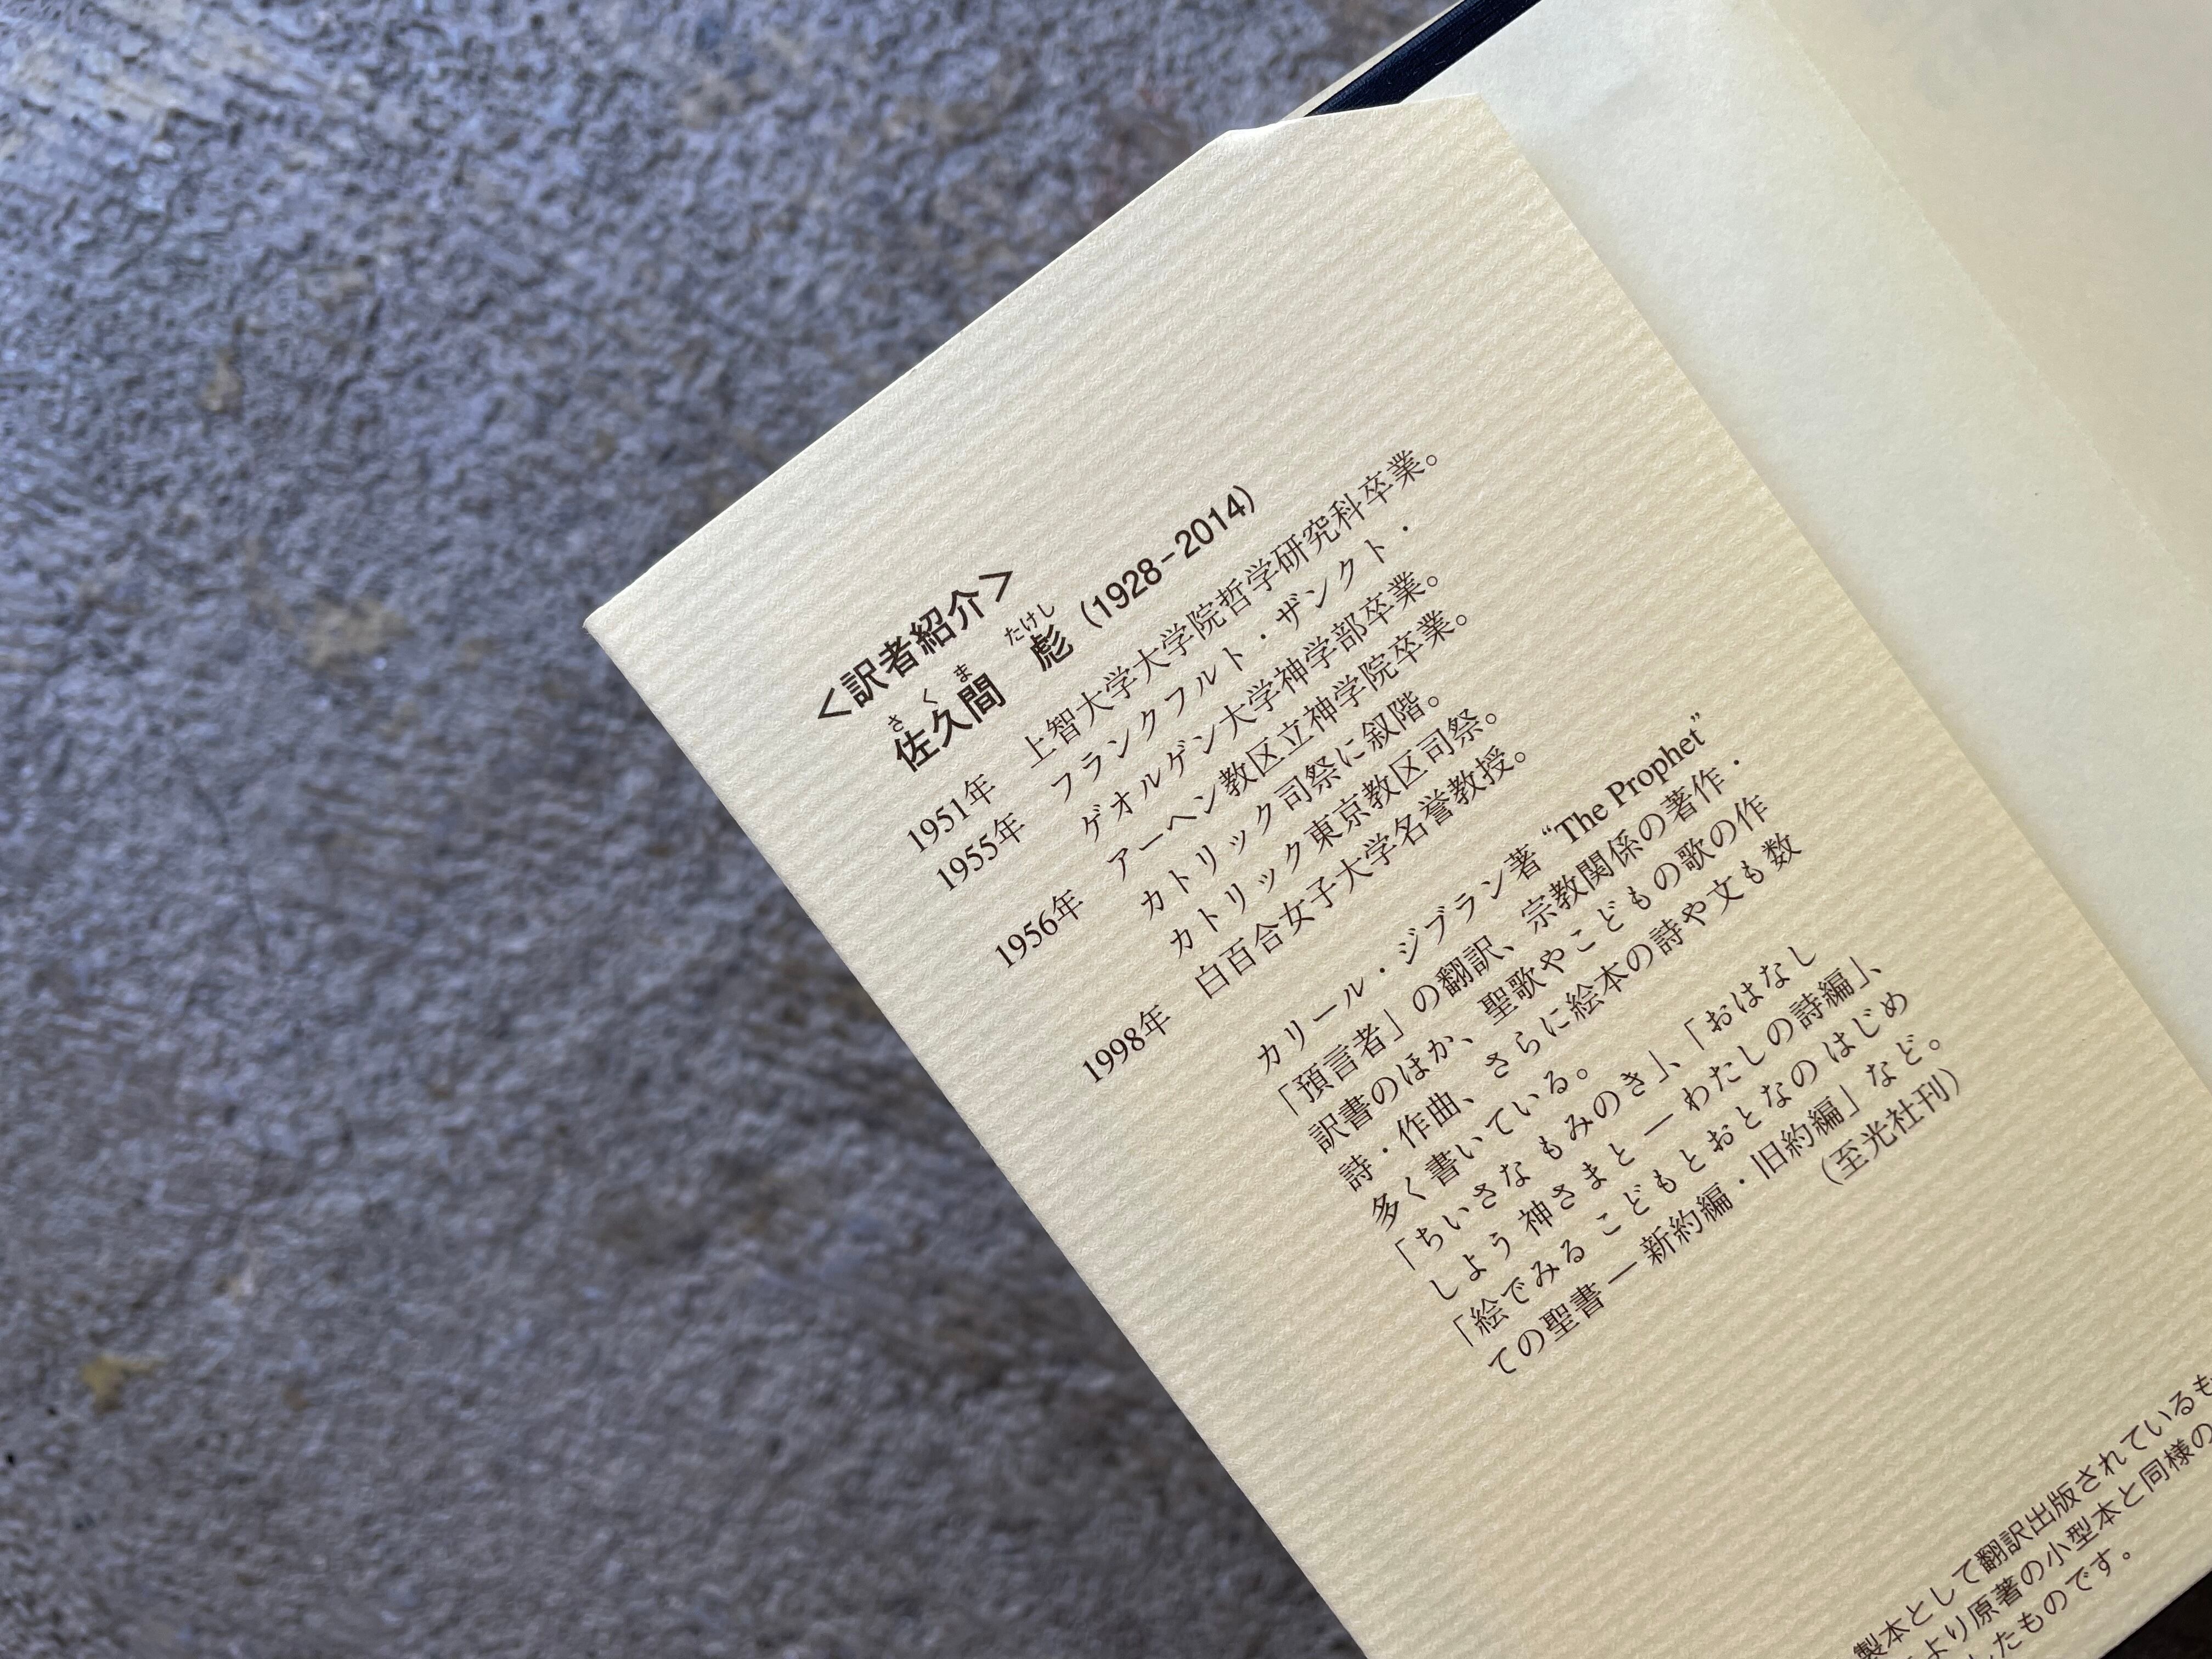 <訳者紹介>
佐久間 彪 (1928-2014)
さくま たけし
1951年 上智大学大学院哲学研究科卒業。
1955年 フランクフルト・ザンクト・
ゲオルゲン大学神学部卒業。
1956年 アーヘン教区立神学院卒業。
カトリック司祭に叙階。
カトリック東京教区司祭。
1998年 白百合女子大学名誉教授。
カリール・ジブラン著 “The Prophet”
「預言者」の翻訳、宗教関係の著作・
訳書のほか、聖歌やこどもの歌の作
詩・作曲、さらに絵本の詩や文も数
多く書いている。
「ちいさな もみのき」、「おはなし
しよう 神さまと ― わたしの詩編」、
「絵でみる こどもとおとなの はじめ
ての聖書 ― 新約編・旧約編」など。
(至光社刊)
製本として翻訳出版されているも
より原著の小型本と同様の
したものです。